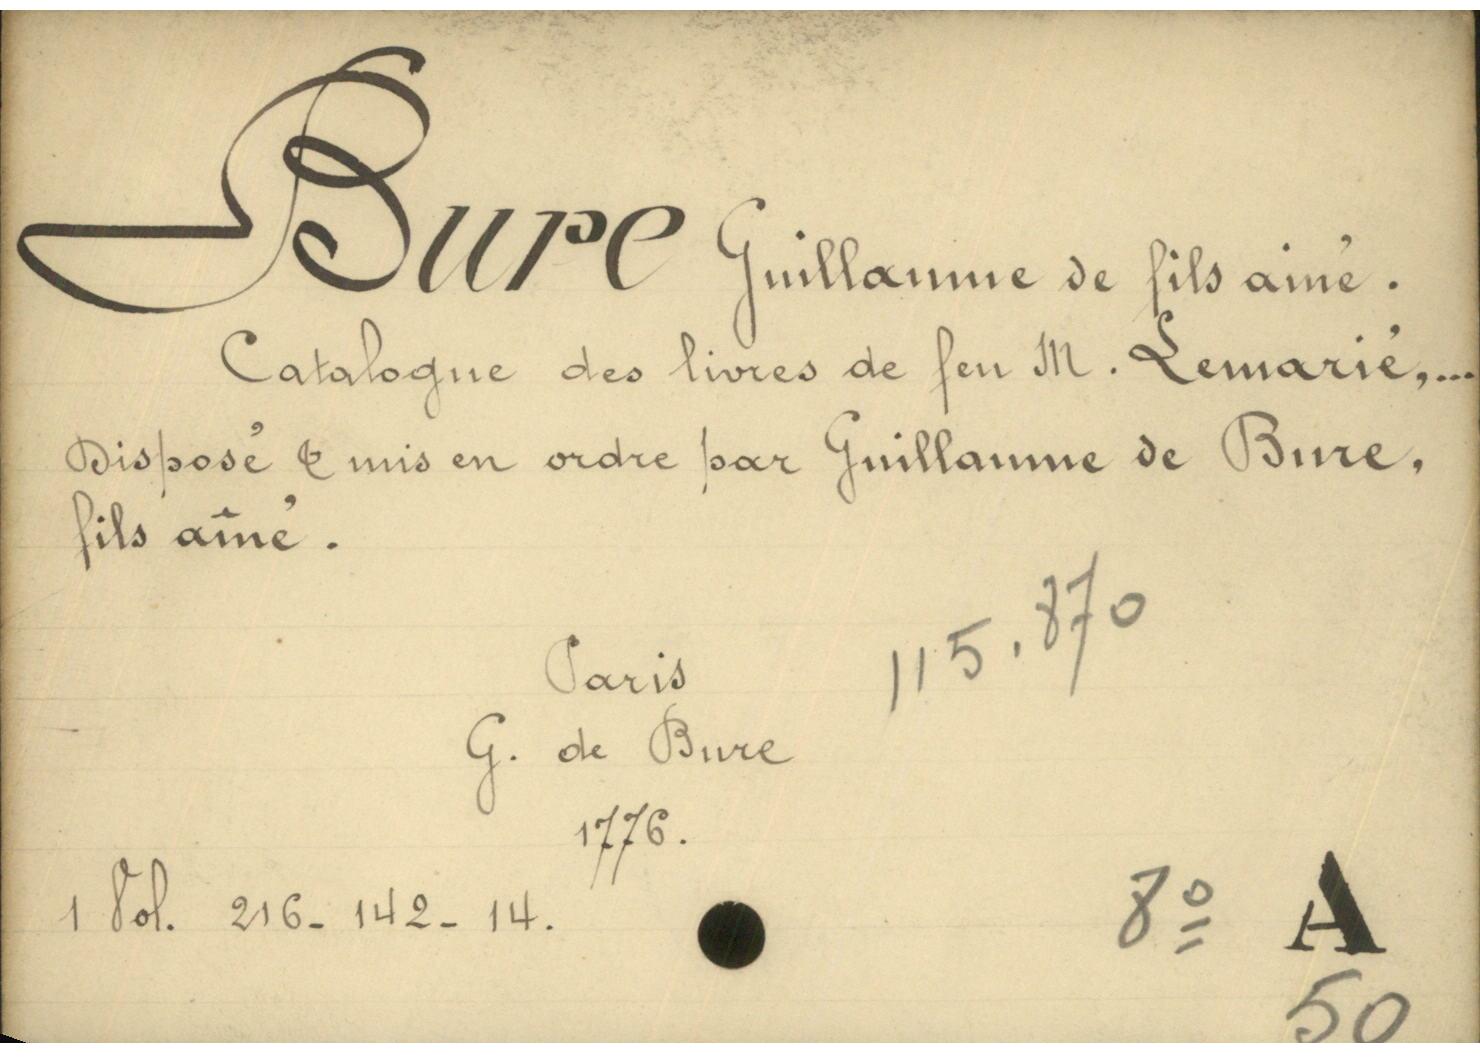 Bure Guillaume de fils ainé.
Catalogue des livres de feu M. Lemarié,...
Disposé & mis en ordre par Guillaume de Bure,
fils aîné.
115.870
Paris
G. de Bure
1776.
1 Vol. 216- 142- 14.
8º A
50